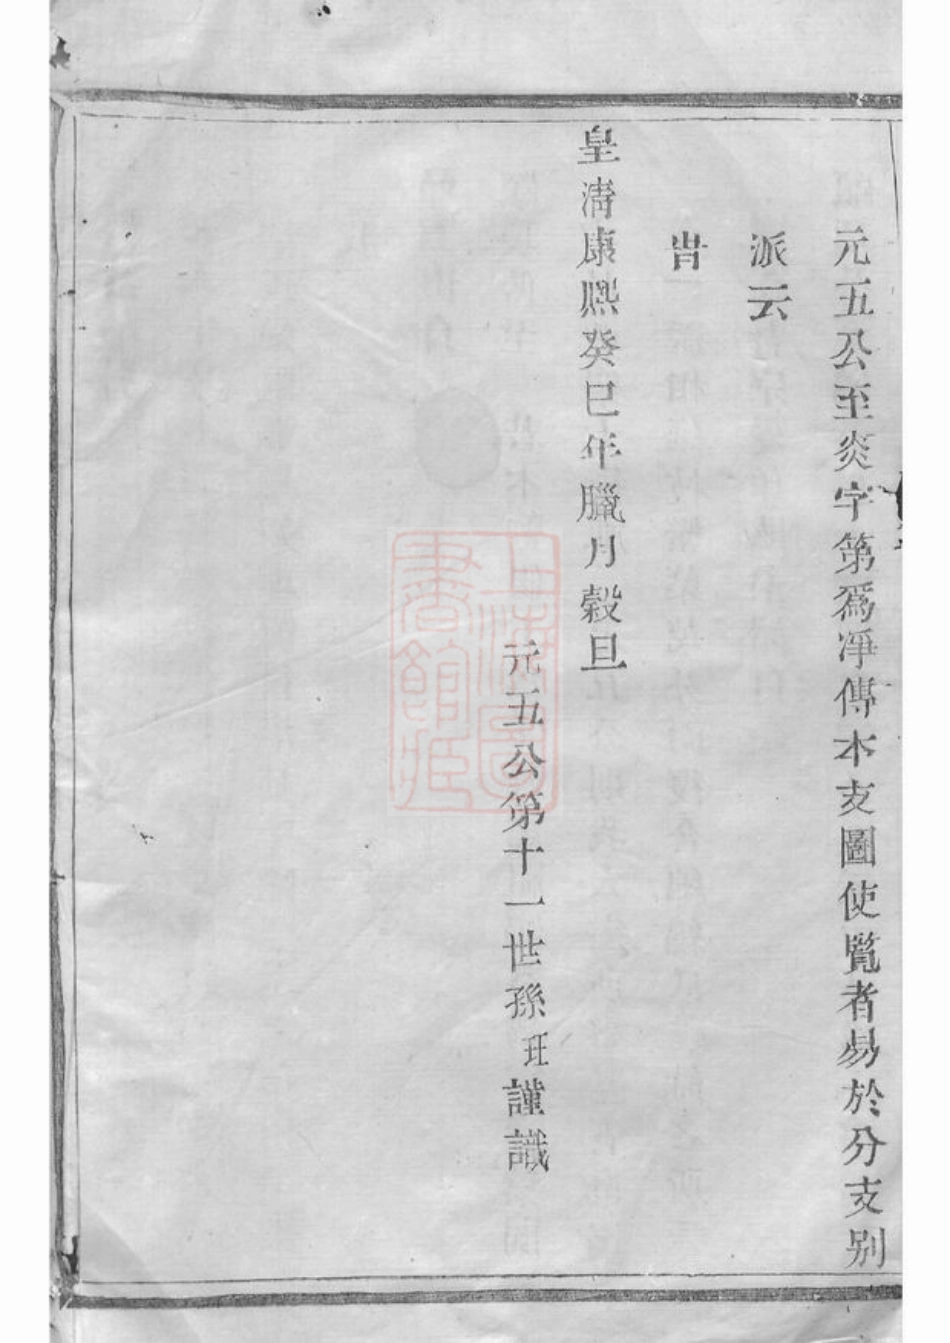 元五公至炎字第爲淨傳本支圖使覧者易於分支别
派云
旹
皇淸康熈癸巳年臘月穀旦
元五公第十一世孫珏謹識
上海圖
書館藏